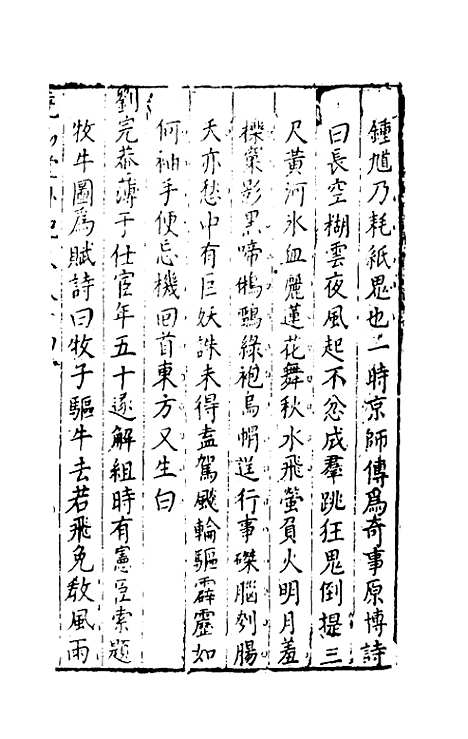 鍾馗乃耗紙鬼也一時京師傳爲奇事原博詩
曰長空糊雲夜風起不忿成羣跳狂鬼倒提三
尺黃河氷血灑蓮花舞秋水飛螢負火明月羞
櫟窠影黑啼鵂鶹綠袍烏帽逞行事磔腦刳腸
天亦愁中有巨妖誅未得盍駕颷輪驅霹靂如
何袖手便忘機回首東方又生白
劉完菴薄于仕宦年五十遂解組時有憲臣索題
牧牛圖爲賦詩曰牧子驅牛去若飛免敎風雨